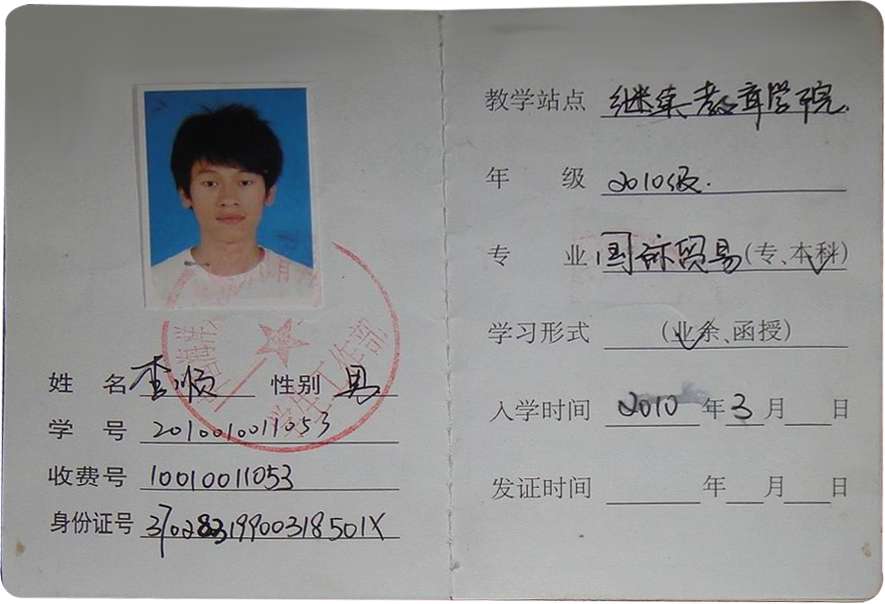 姓 名 李顺 性别 男
学 号 2010010011053
收费号 10010011053
身份证号 37028319900318501X
学生工作部
教学站点 继续教育学院.
年 级 2010级.
专 业 国际贸易(专、本科)
学习形式 (业余、函授)
入学时间 2010年3月 日
发证时间 年 月 日